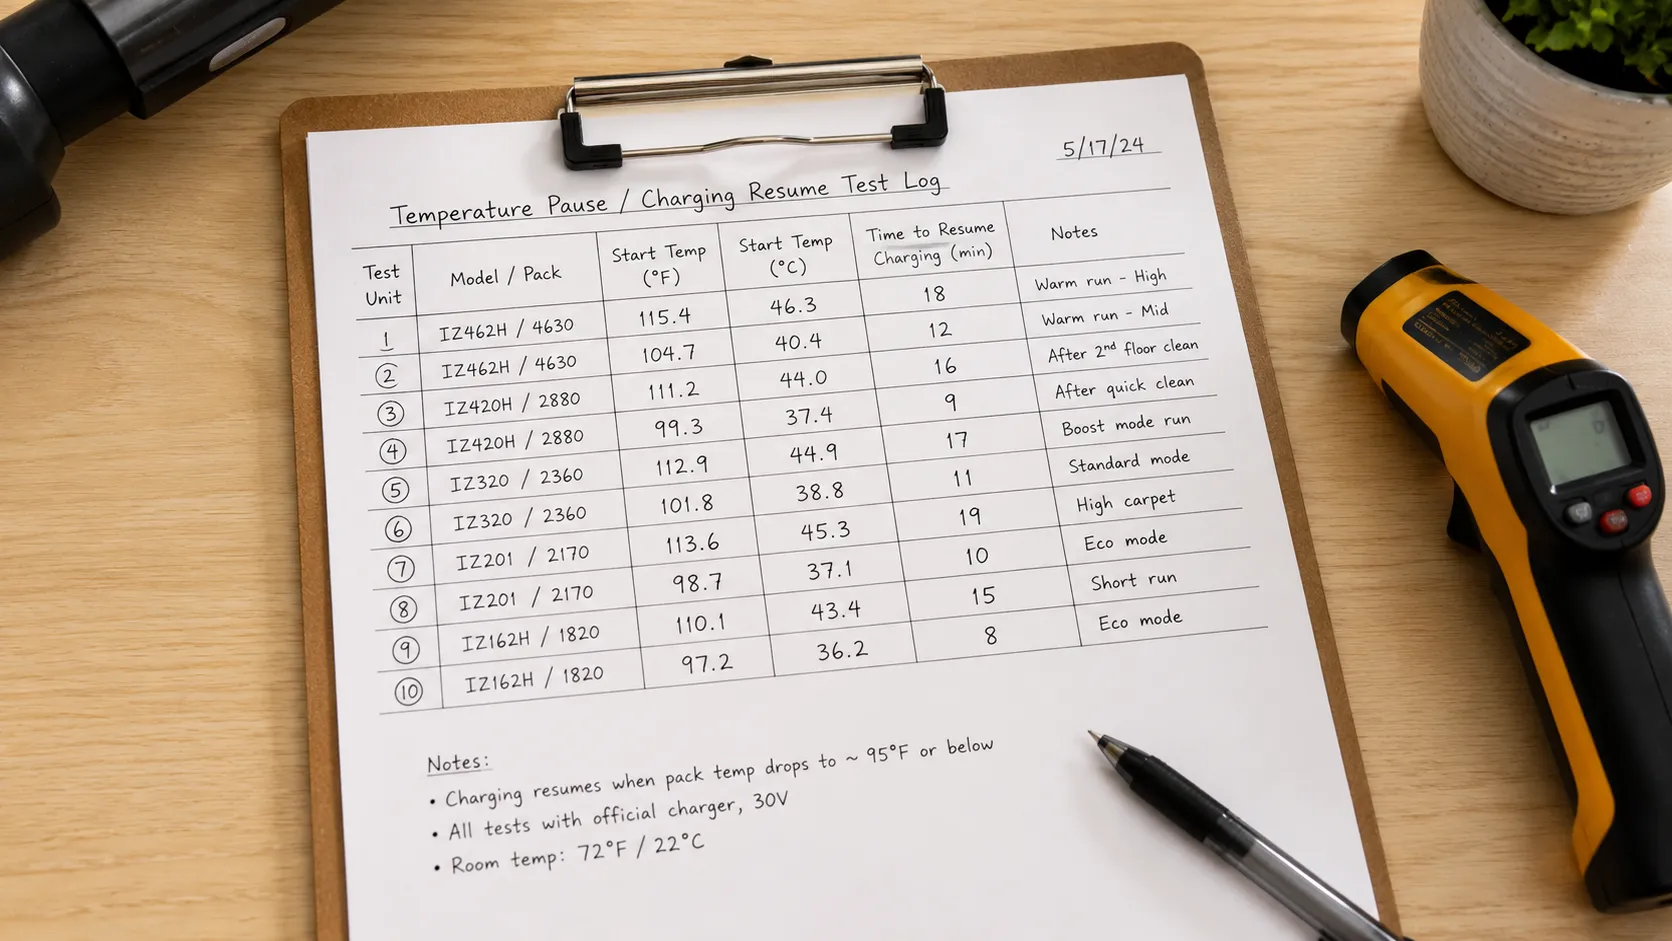 5/17/24
Temperature Pause / Charging Resume Test Log
Test Unit Model / Pack Start Temp (°F) Start Temp (°C) Time to Resume Charging (min) Notes
1 IZ462H / 4630 115.4 46.3 18 Warm run - High
2 IZ462H / 4630 104.7 40.4 12 Warm run - Mid
3 IZ420H / 2880 111.2 44.0 16 After 2nd floor clean
4 IZ420H / 2880 99.3 37.4 9 After quick clean
5 IZ320 / 2360 112.9 44.9 17 Boost mode run
6 IZ320 / 2360 101.8 38.8 11 Standard mode
7 IZ201 / 2170 113.6 45.3 19 High carpet
8 IZ201 / 2170 98.7 37.1 10 Eco mode
9 IZ162H / 1820 110.1 43.4 15 Short run
10 IZ162H / 1820 97.2 36.2 8 Eco mode
Notes:
• Charging resumes when pack temp drops to ~ 95°F or below
• All tests with official charger, 30V
• Room temp: 72°F / 22°C